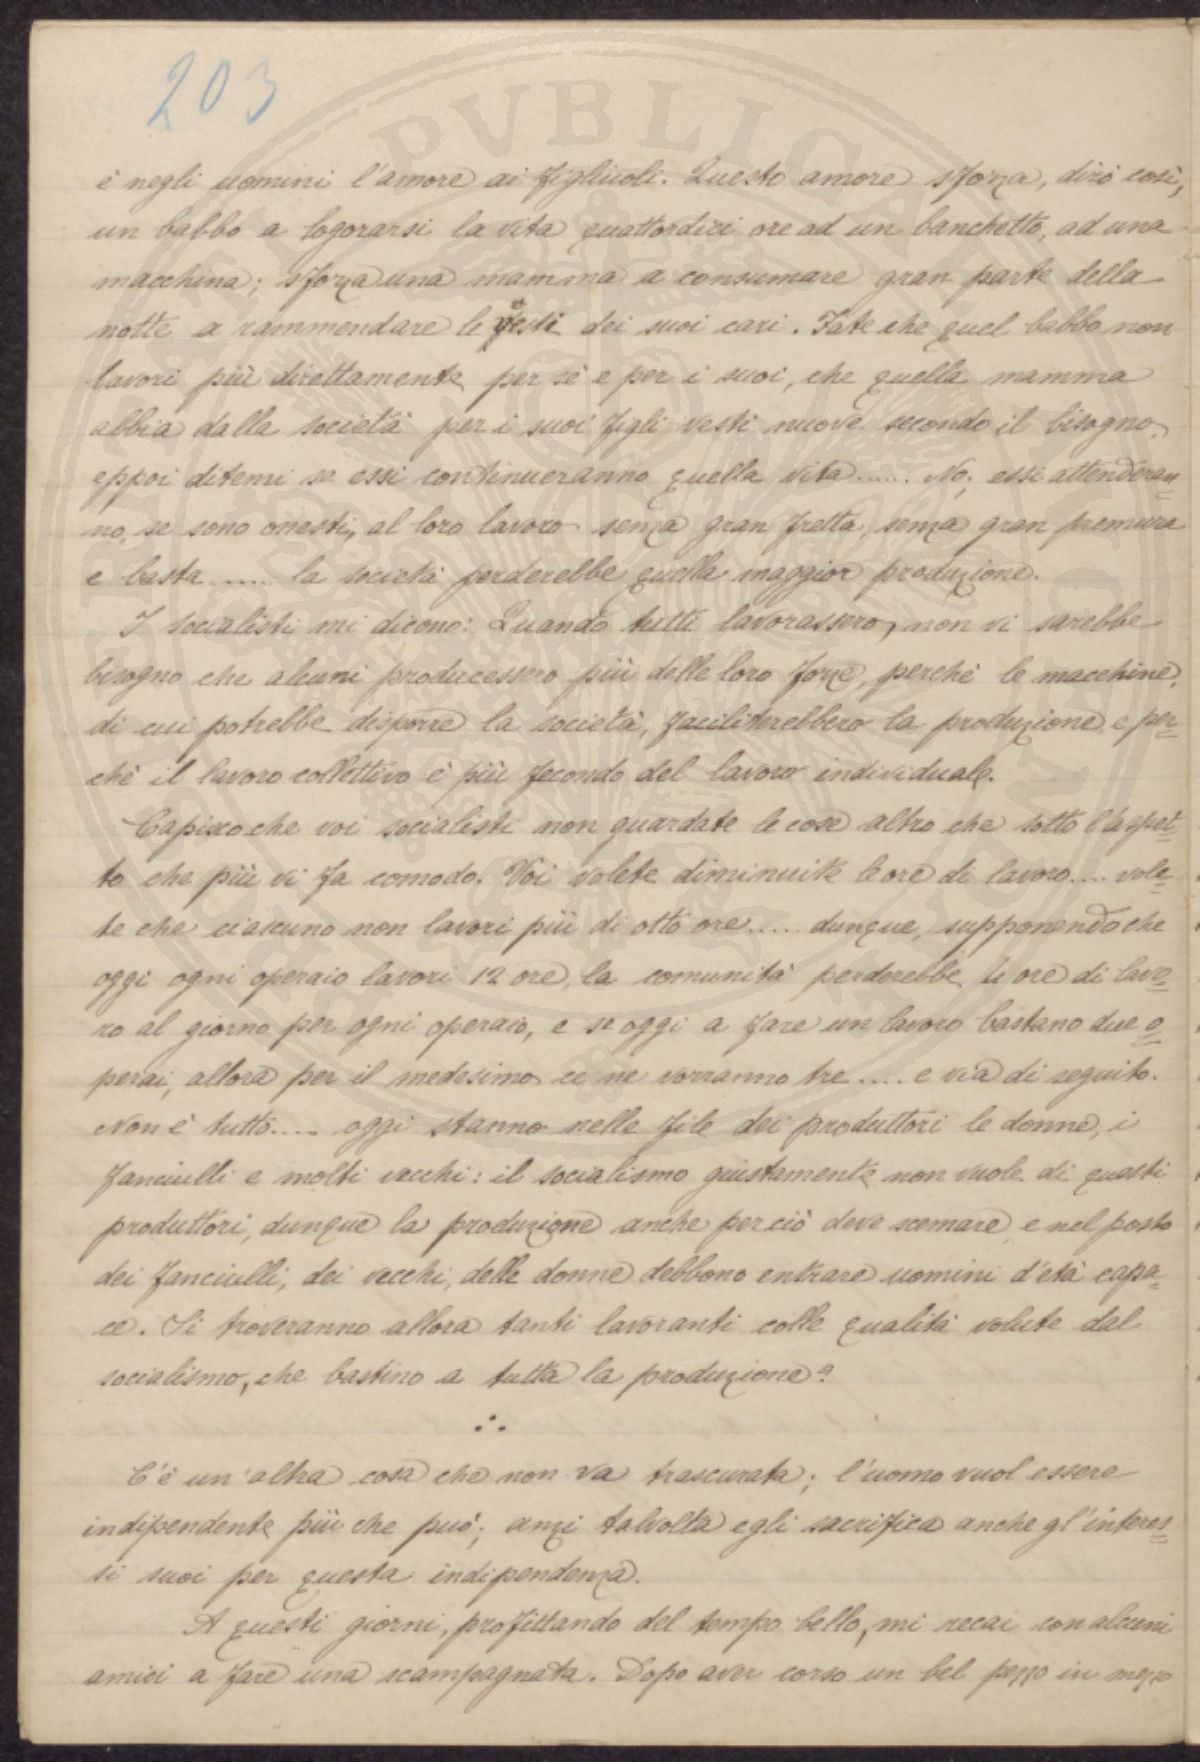 203
è negli uomini l'amore ai figliuoli. Questo amore sforza, dirò così,
un babbo a logorarsi la vita quattordici ore ad un banchetto, ad una
macchina; sforza una mamma a consumare gran parte della
notte a rammendare le vesti dei suoi cari. Fate che quel babbo non
lavori più direttamente per sè e per i suoi, che quella mamma
abbia dalla società per i suoi figli vesti nuove secondo il bisogno,
eppoi ditemi se essi continueranno quella vita...... No; essi attenderan=
no, se sono onesti, al loro lavoro senza gran fretta, senza gran premura
e basta...... la società perderebbe quella maggior produzione.
I socialisti mi dicono: Quando tutti lavorassero, non vi sarebbe
bisogno che alcuni producessero più delle loro forze, perchè le macchine,
di cui potrebbe disporre la società, faciliterebbero la produzione e per=
chè il lavoro collettivo è più fecondo del lavoro individuale.
Capisco che voi socialisti non guardate le cose altro che sotto l'aspet=
to che più vi fa comodo. Voi volete diminuite le ore di lavoro.... vole=
te che ciascuno non lavori più di otto ore..... dunque, supponendo che
oggi ogni operaio lavori 12 ore, la comunità perderebbe 4 ore di lavo=
ro al giorno per ogni operaio, e se oggi a fare un lavoro bastano due o=
perai, allora per il medesimo ce ne vorranno tre.... e via di seguito.
Non è tutto.... oggi stanno nelle file dei produttori le donne, i
fanciulli e molti vecchi: il socialismo giustamente non vuole di questi
produttori, dunque la produzione anche per ciò deve scemare, e nel posto
dei fanciulli, dei vecchi, delle donne debbono entrare uomini d'età capa=
ce. Si troveranno allora tanti lavoranti colle qualità volute dal
socialismo, che bastino a tutta la produzione?
∴
C'è un'altra cosa che non va trascurata; l'uomo vuol essere
indipendente più che può; anzi talvolta egli sacrifica anche gl'interes=
si suoi per questa indipendenza.
A questi giorni, profittando del tempo bello, mi recai con alcuni
amici a fare una scampagnata. Dopo aver corso un bel pezzo in mezzo